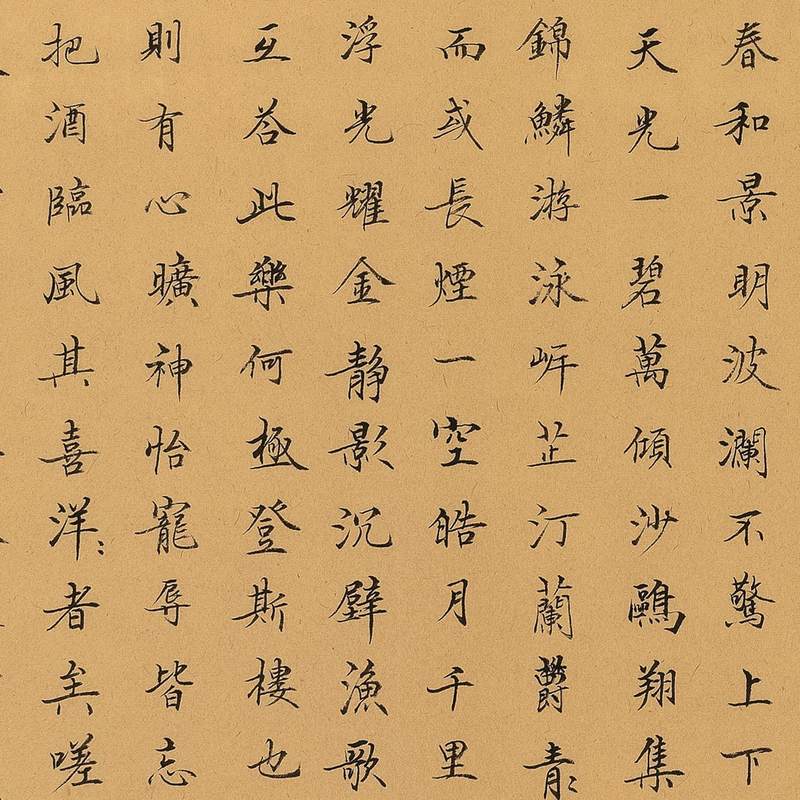 春和景明波瀾不驚上下
天光一碧萬傾沙鷗翔集
錦鱗游泳岍芷汀蘭鬱青〻
而或長煙一空皓月千里
浮光耀金靜影沉璧漁歌
互答此樂何極登斯樓也
則有心曠神怡寵辱皆忘
把酒臨風其喜洋〻者矣嗟